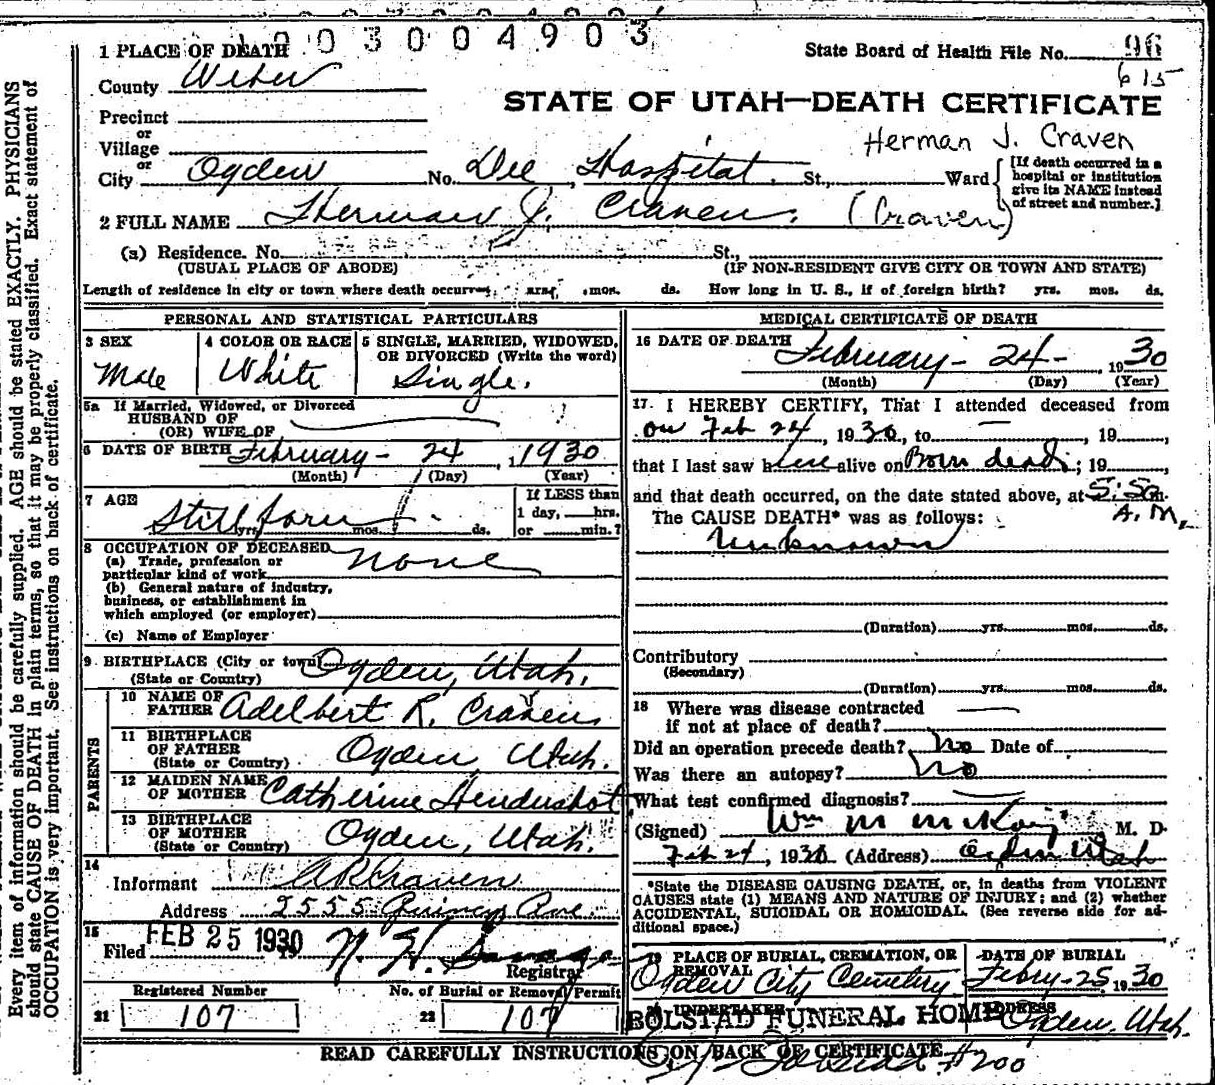 0030004903
1 PLACE OF DEATH
State Board of Health File No. 96
615
County Weber
STATE OF UTAH—DEATH CERTIFICATE
Precinct
or
Village
or
Herman J. Craven
City Ogden No. Dee Hospital. St., Ward
[If death occurred in a hospital or institution give its NAME instead of street and number.]
2 FULL NAME Herman J. Craven. (Craven)
(a) Residence. No. St.,
(USUAL PLACE OF ABODE) (IF NON-RESIDENT GIVE CITY OR TOWN AND STATE)
Length of residence in city or town where death occurred mos. ds. How long in U. S., if of foreign birth? yrs. mos. ds.
PERSONAL AND STATISTICAL PARTICULARS
3 SEX
Male
4 COLOR OR RACE
White
5 SINGLE, MARRIED, WIDOWED,
OR DIVORCED (Write the word)
Single.
5a If Married, Widowed, or Divorced
HUSBAND OF
(OR) WIFE OF
6 DATE OF BIRTH February - 24, 1930
(Month) (Day) (Year)
7 AGE
Still born
yrs. mos. ds.
If LESS than
1 day, hrs.
or min.?
8 OCCUPATION OF DECEASED none
(a) Trade, profession or
particular kind of work
(b) General nature of industry,
business, or establishment in
which employed (or employer)
(c) Name of Employer
9 BIRTHPLACE (City or town) Ogden, Utah.
(State or Country)
PARENTS
10 NAME OF
FATHER Adelbert R. Craven
11 BIRTHPLACE
OF FATHER Ogden Utah.
(State or Country)
12 MAIDEN NAME
OF MOTHER Catherine Hendershot
13 BIRTHPLACE
OF MOTHER Ogden, Utah.
(State or Country)
14
Informant A R Craven
Address 2555 Quincy Ave.
15
Filed FEB 25 1930 N. H. Savage
Registrar
Registered Number No. of Burial or Removal Permit
21 107 22 107
MEDICAL CERTIFICATE OF DEATH
16 DATE OF DEATH February - 24 - 1930
(Month) (Day) (Year)
17. I HEREBY CERTIFY, That I attended deceased from
on Feb 24, 1930, to — , 19 ,
that I last saw h alive on Born dead; 19 ,
and that death occurred, on the date stated above, at
A.M.
The CAUSE DEATH* was as follows:
Unknown
(Duration) yrs. mos. ds.
Contributory
(Secondary)
(Duration) yrs. mos. ds.
18 Where was disease contracted
if not at place of death? —
Did an operation precede death? No Date of
Was there an autopsy? No
What test confirmed diagnosis?
(Signed) Wm M McKay M. D.
Feb 24, 1930 (Address) Ogden Utah
*State the DISEASE CAUSING DEATH, or, in deaths from VIOLENT
CAUSES state (1) MEANS AND NATURE OF INJURY; and (2) whether
ACCIDENTAL, SUICIDAL OR HOMICIDAL. (See reverse side for ad-
ditional space.)
19 PLACE OF BURIAL, CREMATION, OR
REMOVAL
Ogden City Cemetery
DATE OF BURIAL
Febry - 25, 1930
UNDERTAKER
BOLSTAD FUNERAL HOME
ADDRESS
Ogden, Utah.
READ CAREFULLY INSTRUCTIONS ON BACK OF CERTIFICATE
#200
Every item of information should be carefully supplied. AGE should be stated EXACTLY. PHYSICIANS
should state CAUSE OF DEATH in plain terms, so that it may be properly classified. Exact statement of
OCCUPATION is very important. See instructions on back of certificate.